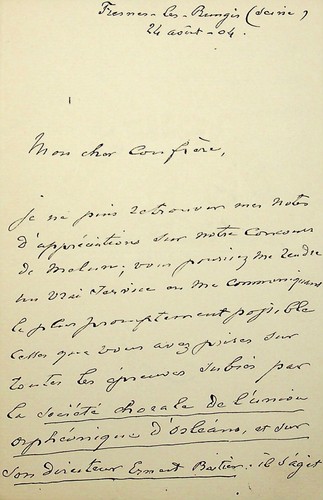 Fresnes-les-Rungis (Seine)
24 août - 04.
Mon cher Confrère,
Je ne puis retrouver mes notes
d'appréciations sur notre Concours
de Melun; vous pourriez me rendre
un vrai service en me communiquant
le plus promptement possible
celles que vous avez prises sur
toutes les épreuves subies par
la Société chorale de l'union
orphéonique d'Orléans, et sur
son directeur Ernest : il s'agit